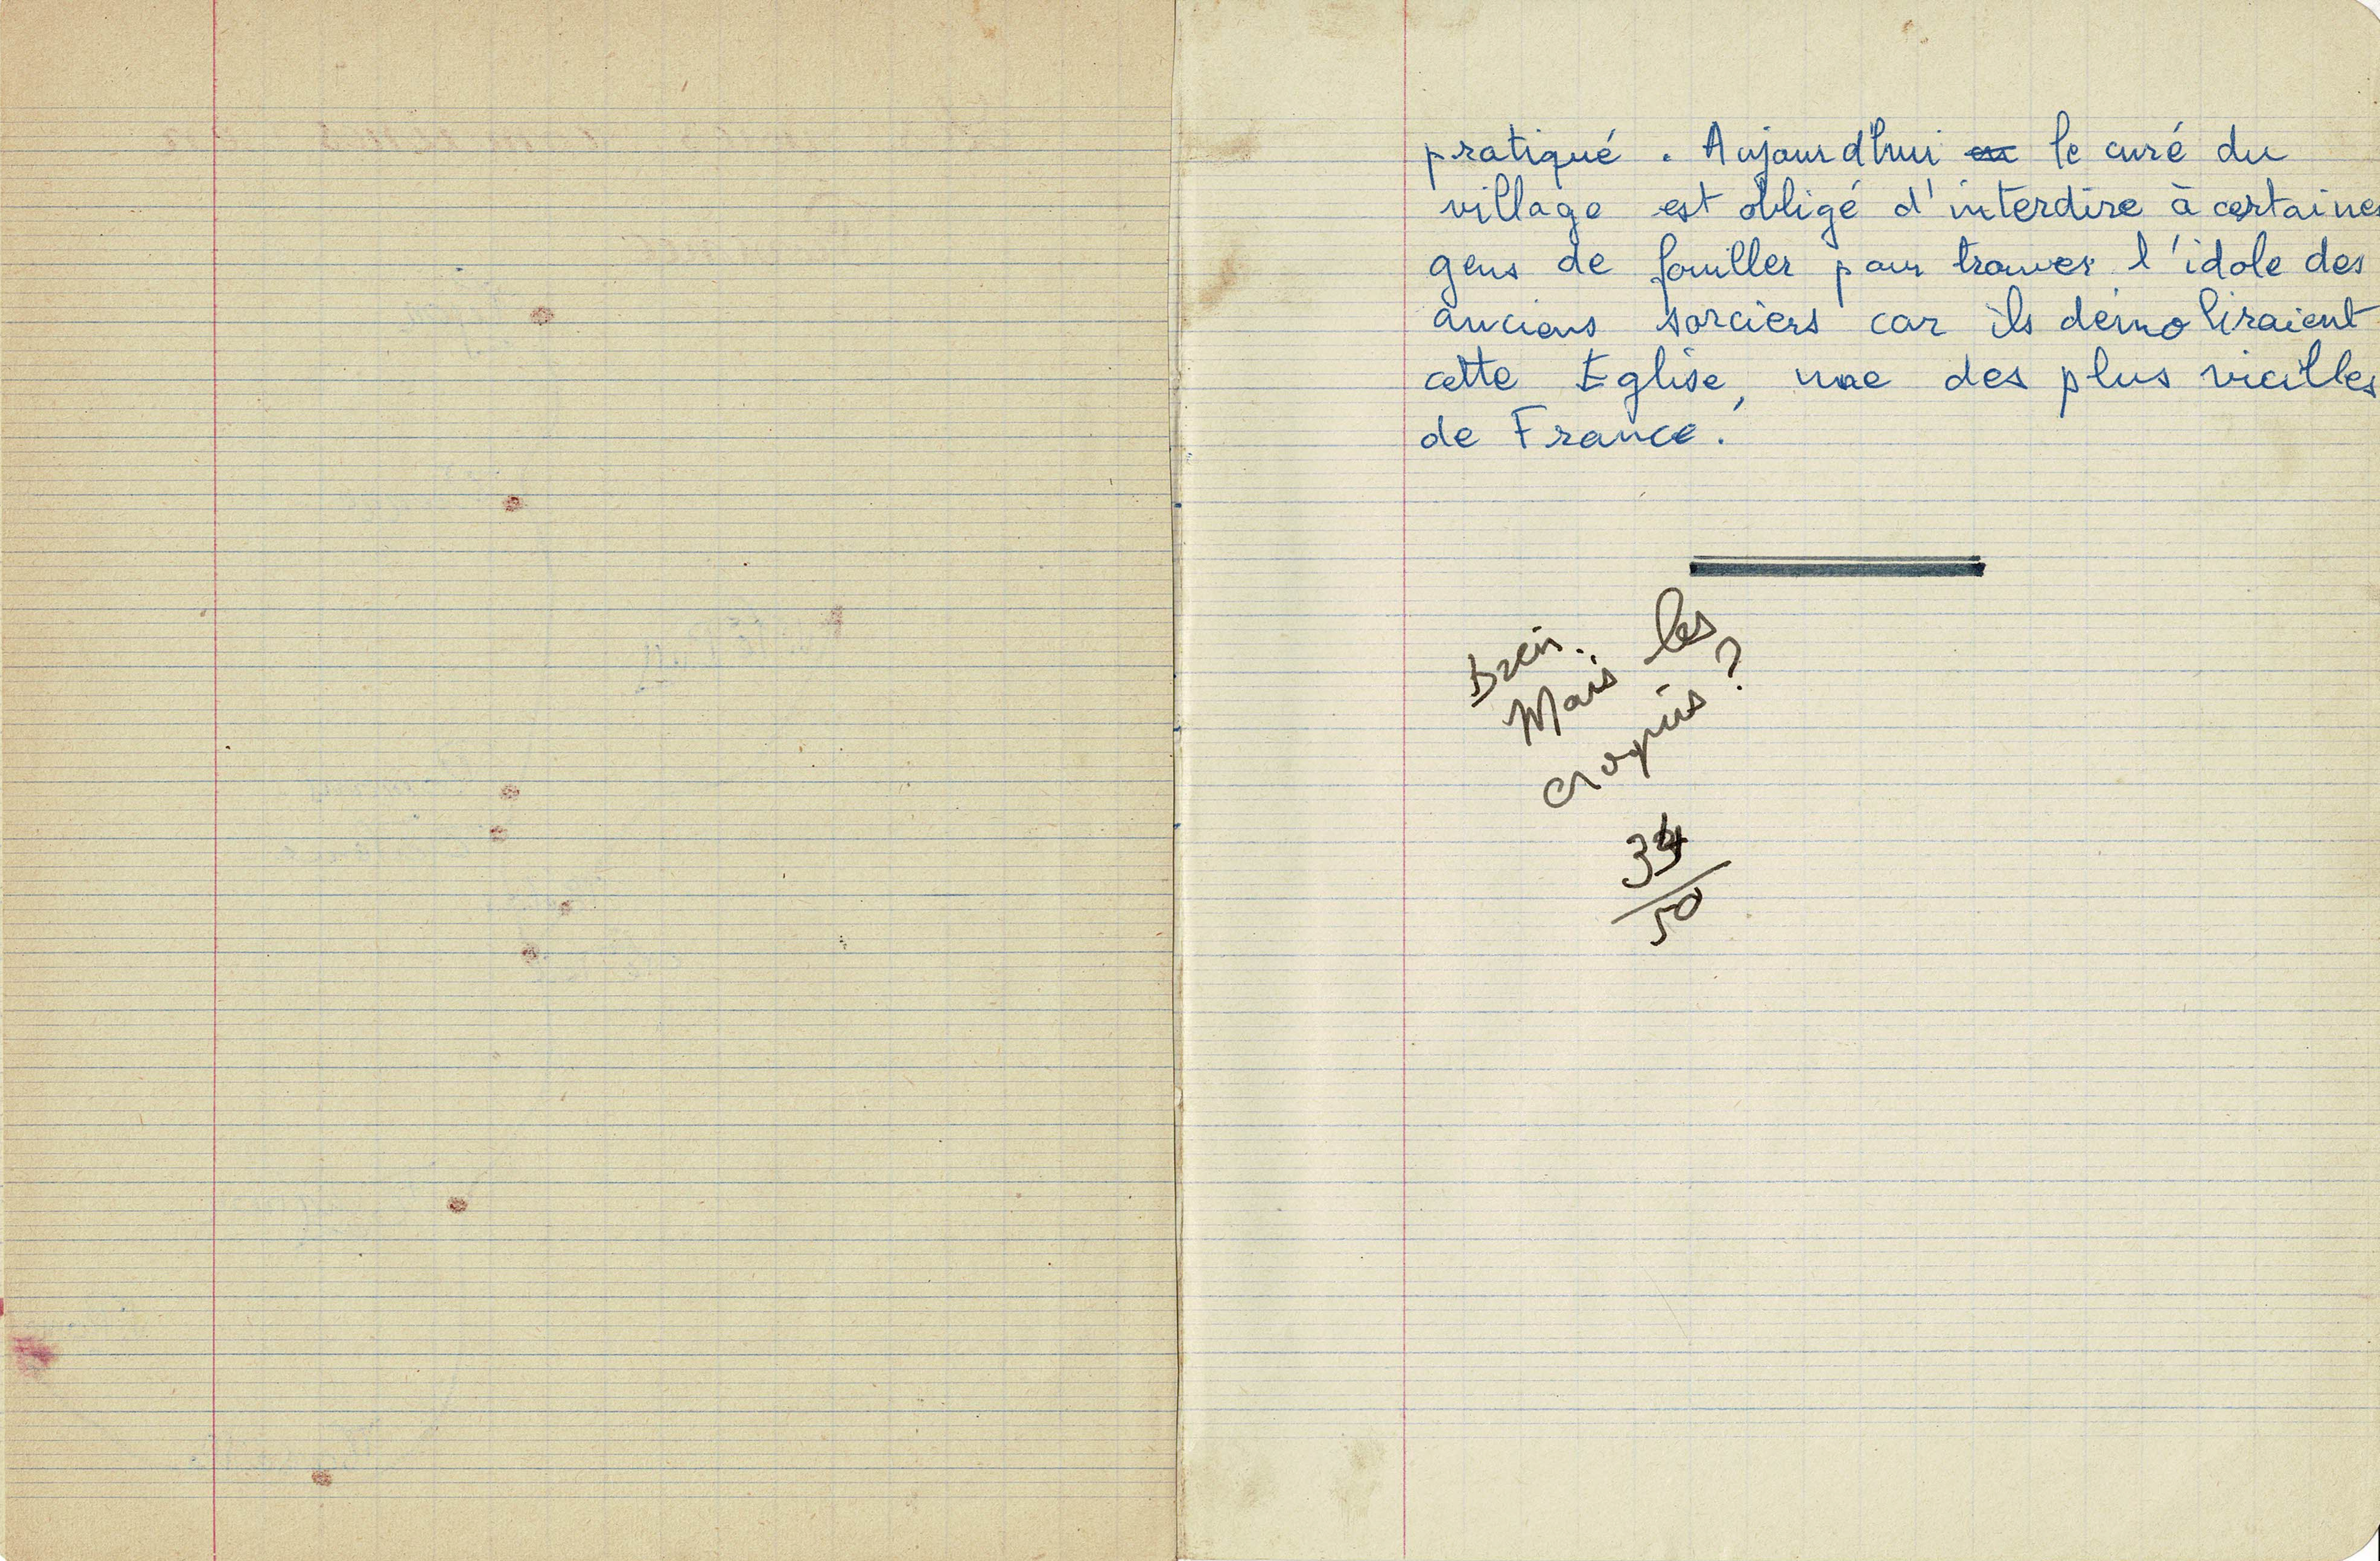 pratiqué. Aujourd'hui le curé du
village est obligé d'interdire à certaines
gens de fouiller pour trouver l'idole des
anciens sorciers car ils démoliraient
cette Eglise, une des plus vieilles
de France.
Bien.
Mais les
croquis ?
34
50